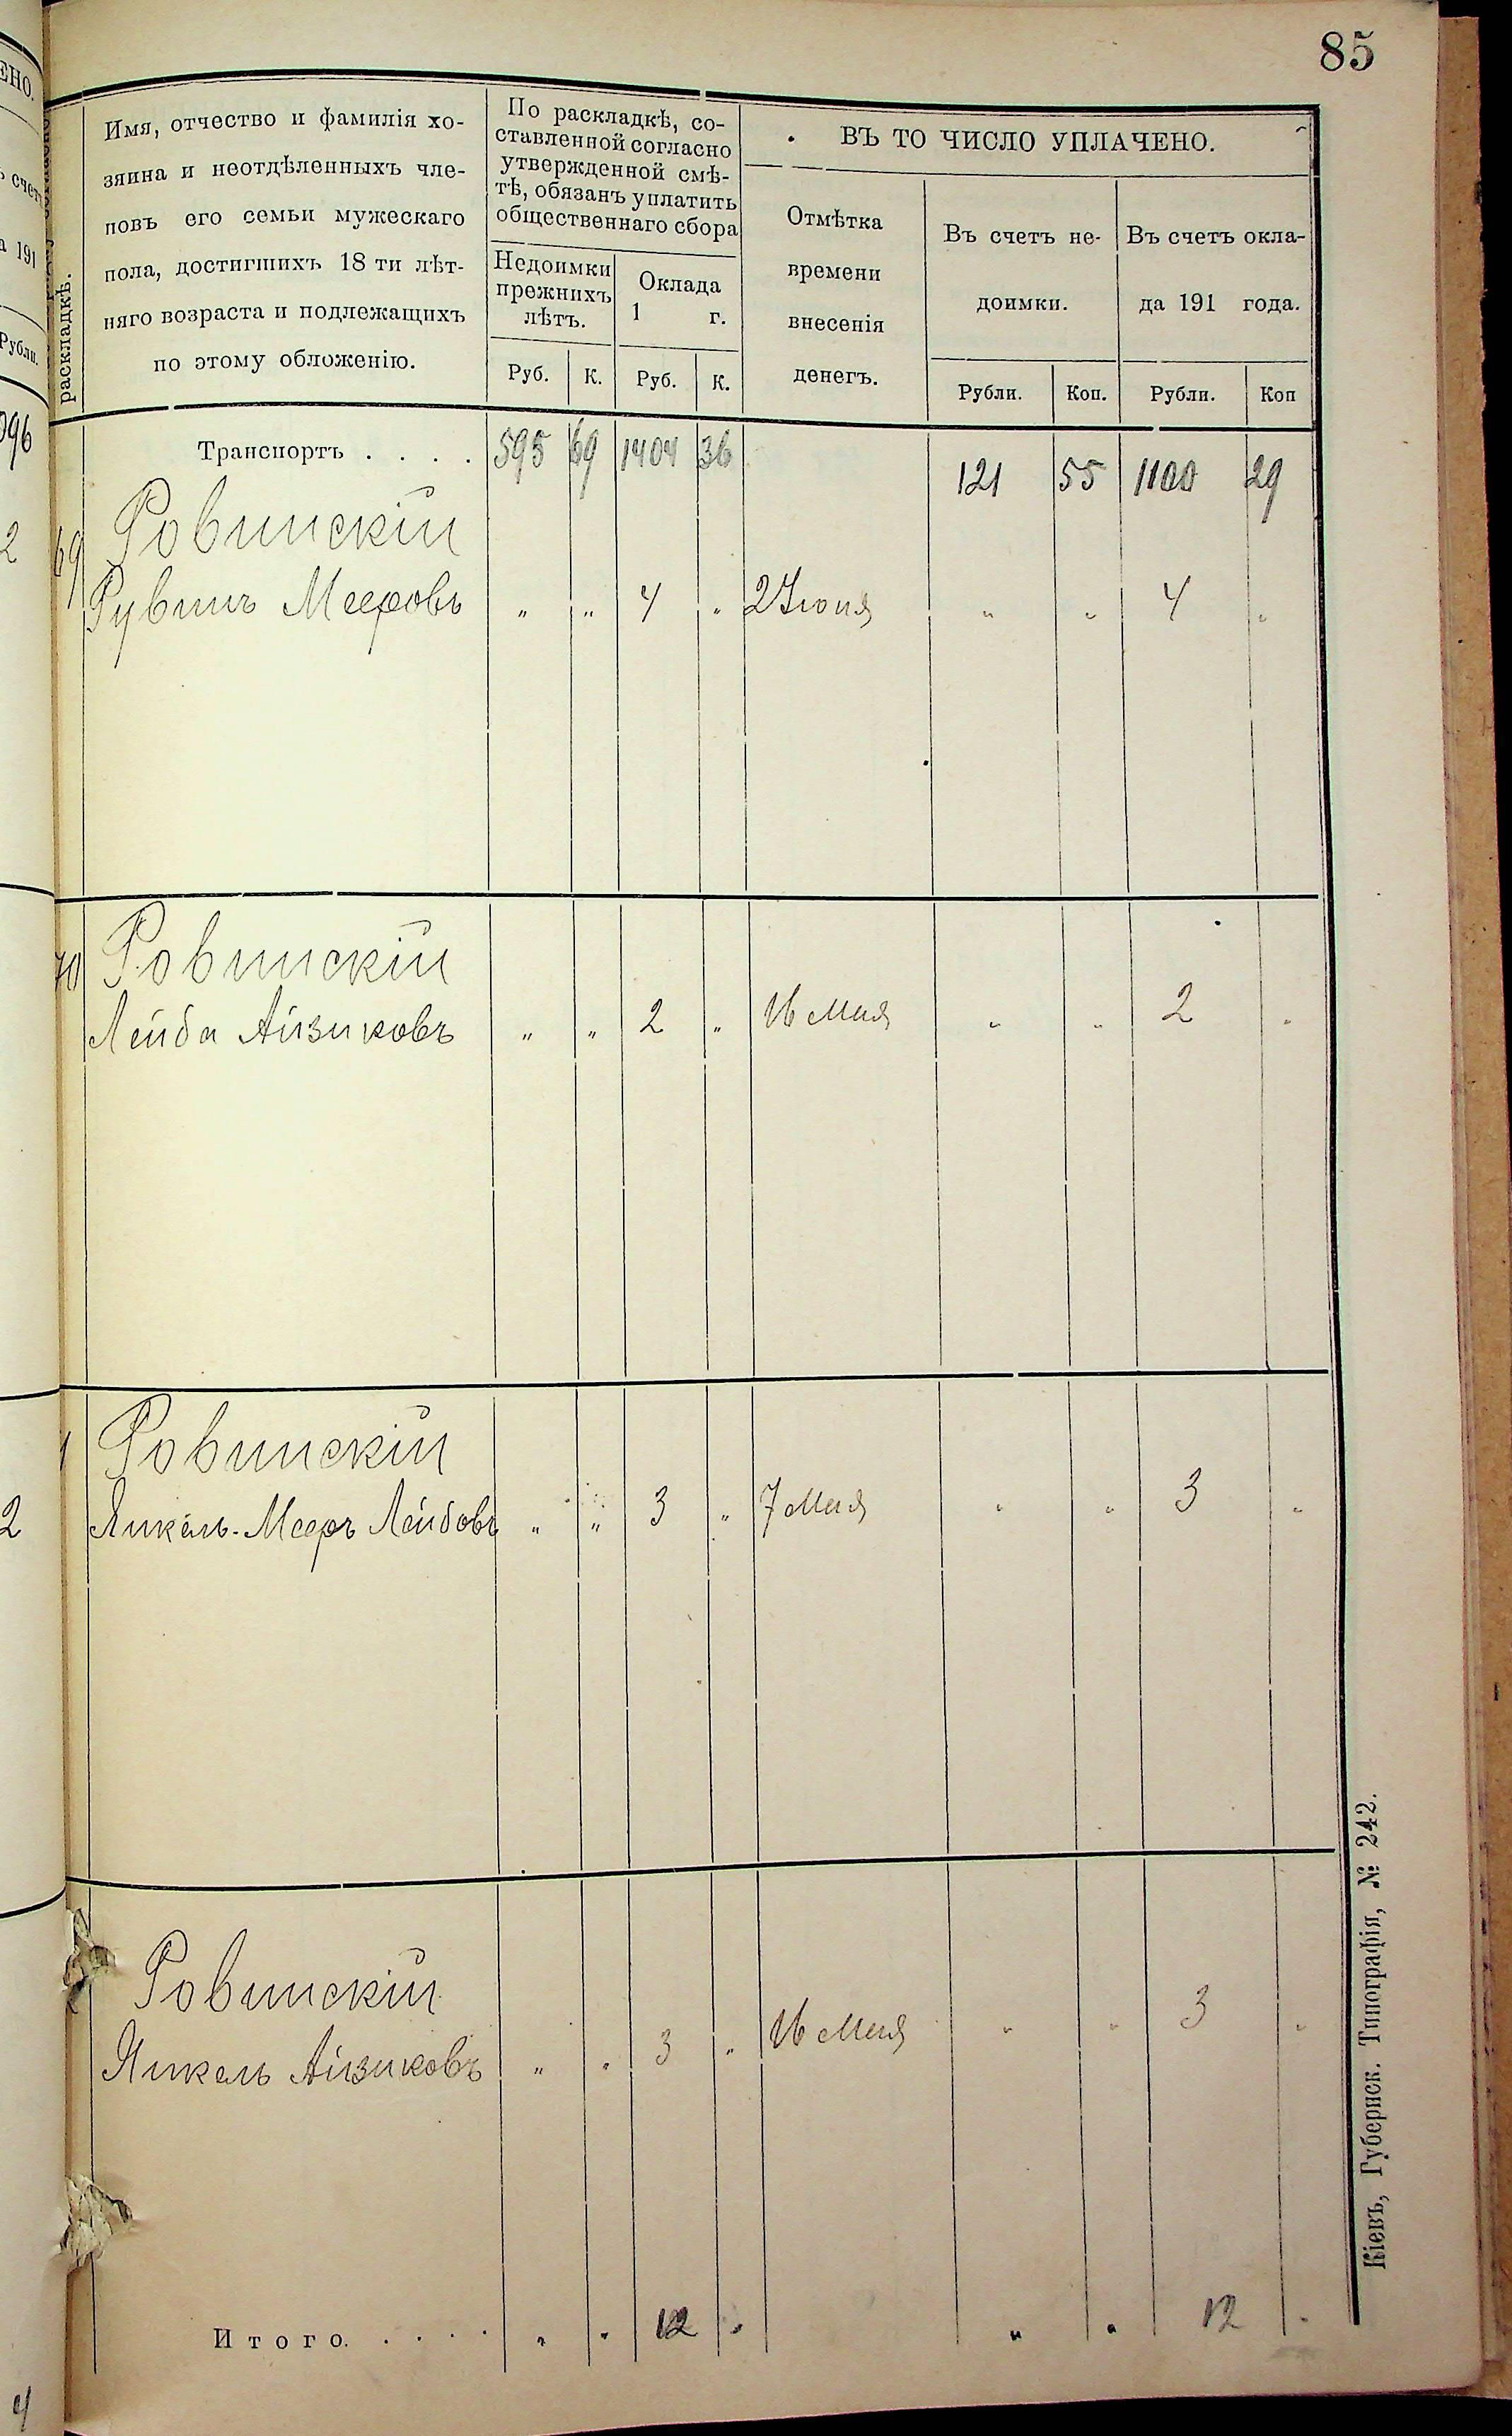 85
Имя, отчество и фамилія хо-
зяина и неотдѣленныхъ чле-
новъ его семьи мужескаго
пола, достигшихъ 18 ти лѣт-
няго возраста и подлежащихъ
по этому обложенію.
По раскладкѣ, со-
ставленной согласно
утвержденной смѣ-
тѣ, обязанъ уплатить
общественнаго сбора
Недоимки
прежнихъ
лѣтъ.
Оклада
1 г.
Руб. К. Руб. К.
ВЪ ТО ЧИСЛО УПЛАЧЕНО.
Отмѣтка
времени
внесенія
денегъ.
Въ счетъ не-
доимки.
Въ счетъ окла-
да 191 года.
Рубли. Коп. Рубли. Коп
раскладкѣ.
Транспортъ . . . . 595 69 1404 36 121 55 1100 29
69 Ровинскій
Рувинъ Мееровъ " " 4 " 2 Іюня " " 4 "
70 Ровинскій
Лейба Айзиковъ " " 2 " 16 Мая " " 2 "
1 Ровинскій
Янкель-Мееръ Лейбовъ " " 3 " 7 Мая " " 3 "
Ровинскій
Янкель Айзиковъ " " 3 " 16 Мая " " 3 "
Итого. . . . . " " 12 " " " 12 "
Кіевъ, Губернск. Типографія, № 242.
ЕНО.
счетъ
а 191
Рубли.
096
2
2
4